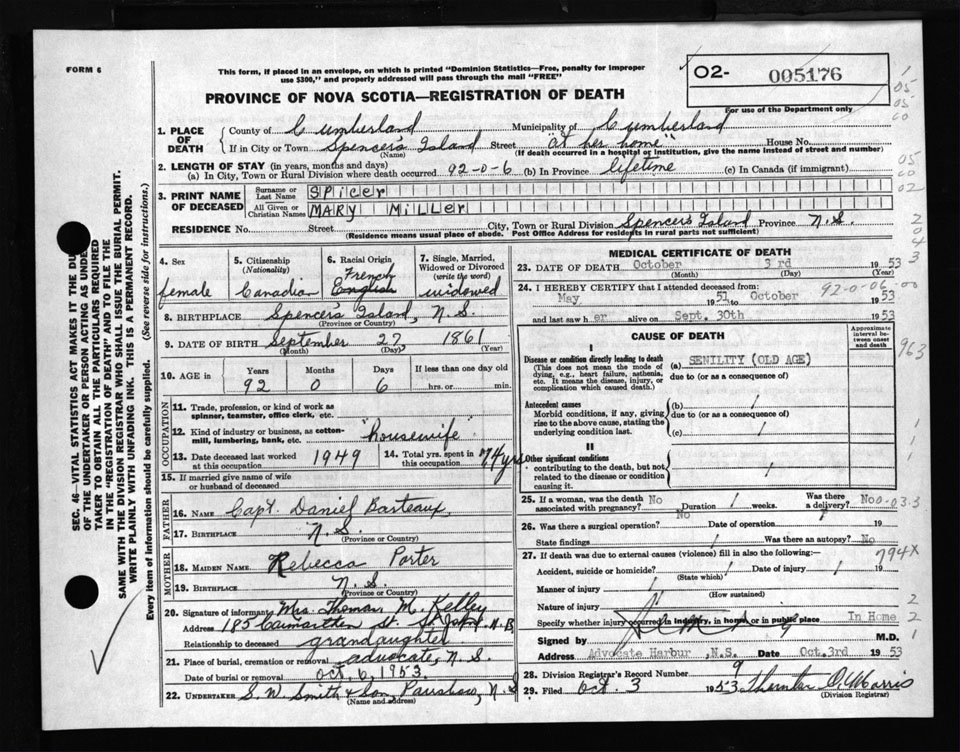 FORM 6
This form, if placed in an envelope, on which is printed "Dominion Statistics—Free, penalty for improper
use $300," and properly addressed will pass through the mail "FREE"
02- 005176
For use of the Department only
PROVINCE OF NOVA SCOTIA—REGISTRATION OF DEATH
1. PLACE OF DEATH { County of Cumberland Municipality of Cumberland
If in City or Town Spencer's Island Street "at her home" House No.
(Name) (If death occurred in a hospital or institution, give the name instead of street and number)
2. LENGTH OF STAY (in years, months and days)
(a) In City, Town or Rural Division where death occurred 92-0-6 (b) In Province lifetime (c) In Canada (if immigrant)
3. PRINT NAME OF DECEASED { Surname or Last Name SPICER
All Given or Christian Names MARY MILLER
RESIDENCE No. Street City, Town or Rural Division Spencer's Island Province N.S.
(Residence means usual place of abode. Post Office Address for residents in rural parts not sufficient)
4. Sex female
5. Citizenship (Nationality) Canadian
6. Racial Origin French English
7. Single, Married, Widowed or Divorced (write the word) widowed
8. BIRTHPLACE Spencer's Island, N.S.
(Province or Country)
9. DATE OF BIRTH September 27 1861
(Month) (Day) (Year)
10. AGE in Years Months Days If less than one day old
92 0 6 hrs. or min.
OCCUPATION
11. Trade, profession, or kind of work as spinner, teamster, office clerk, etc.
12. Kind of industry or business, as cotton-mill, lumbering, bank, etc. "housewife"
13. Date deceased last worked at this occupation 1949
14. Total yrs. spent in this occupation 74 yrs
15. If married give name of wife or husband of deceased
FATHER
16. NAME Capt. Daniel Basteaux
17. BIRTHPLACE N.S.
(Province or Country)
MOTHER
18. MAIDEN NAME Rebecca Porter
19. BIRTHPLACE N.S.
(Province or Country)
20. Signature of informant Mrs. Thomas M. Kelley
Address 185 St. N.B.
Relationship to deceased grandaughter
21. Place of burial, cremation or removal advocate, N.S.
Date of burial or removal Oct. 6, 1953.
22. UNDERTAKER S. W. Smith & Son, Parrsboro, N.S
(Name and address)
MEDICAL CERTIFICATE OF DEATH
23. DATE OF DEATH October 3rd 1953
(Month) (Day) (Year)
24. I HEREBY CERTIFY that I attended deceased from: 92-0-06-00
May 1951 to October 1953
and last saw her alive on Sept. 30th 1953
CAUSE OF DEATH
Approximate interval between onset and death
I
Disease or condition directly leading to death
(This does not mean the mode of dying, e.g., heart failure, asthenia, etc. It means the disease, injury, or complication which caused death.)
(a) SENILITY (OLD AGE)
due to (or as a consequence of)
Antecedent causes
Morbid conditions, if any, giving rise to the above cause, stating the underlying condition last.
(b) /
due to (or as a consequence of)
(c) /
II
Other significant conditions
contributing to the death, but not related to the disease or condition causing it.
25. If a woman, was the death associated with pregnancy? No Duration / weeks. Was there a delivery? No
26. Was there a surgical operation? No Date of operation / 19
State findings / Was there an autopsy? No
27. If death was due to external causes (violence) fill in also the following:—
794X
Accident, suicide or homicide? / Date of injury / 19
(State which)
Manner of injury /
(How sustained)
Nature of injury /
Specify whether injury occurred in industry, in home or in public place In Home
Signed by M.D.
Address Advocate Harbour, N.S. Date Oct.3rd 1953
28. Division Registrar's Record Number 9
29. Filed Oct. 3 1953
(Division Registrar)
SEC. 46—VITAL STATISTICS ACT MAKES IT THE DU
OF THE UNDERTAKER OR PERSON ACTING AS UNDE
TAKER TO OBTAIN ALL THE PARTICULARS REQUIRED
IN THE "REGISTRATION OF DEATH" AND TO FILE THE
SAME WITH THE DIVISION REGISTRAR WHO SHALL ISSUE THE BURIAL PERMIT.
WRITE PLAINLY WITH UNFADING INK. THIS IS A PERMANENT RECORD.
Every item of information should be carefully supplied. (See reverse side for instructions.)